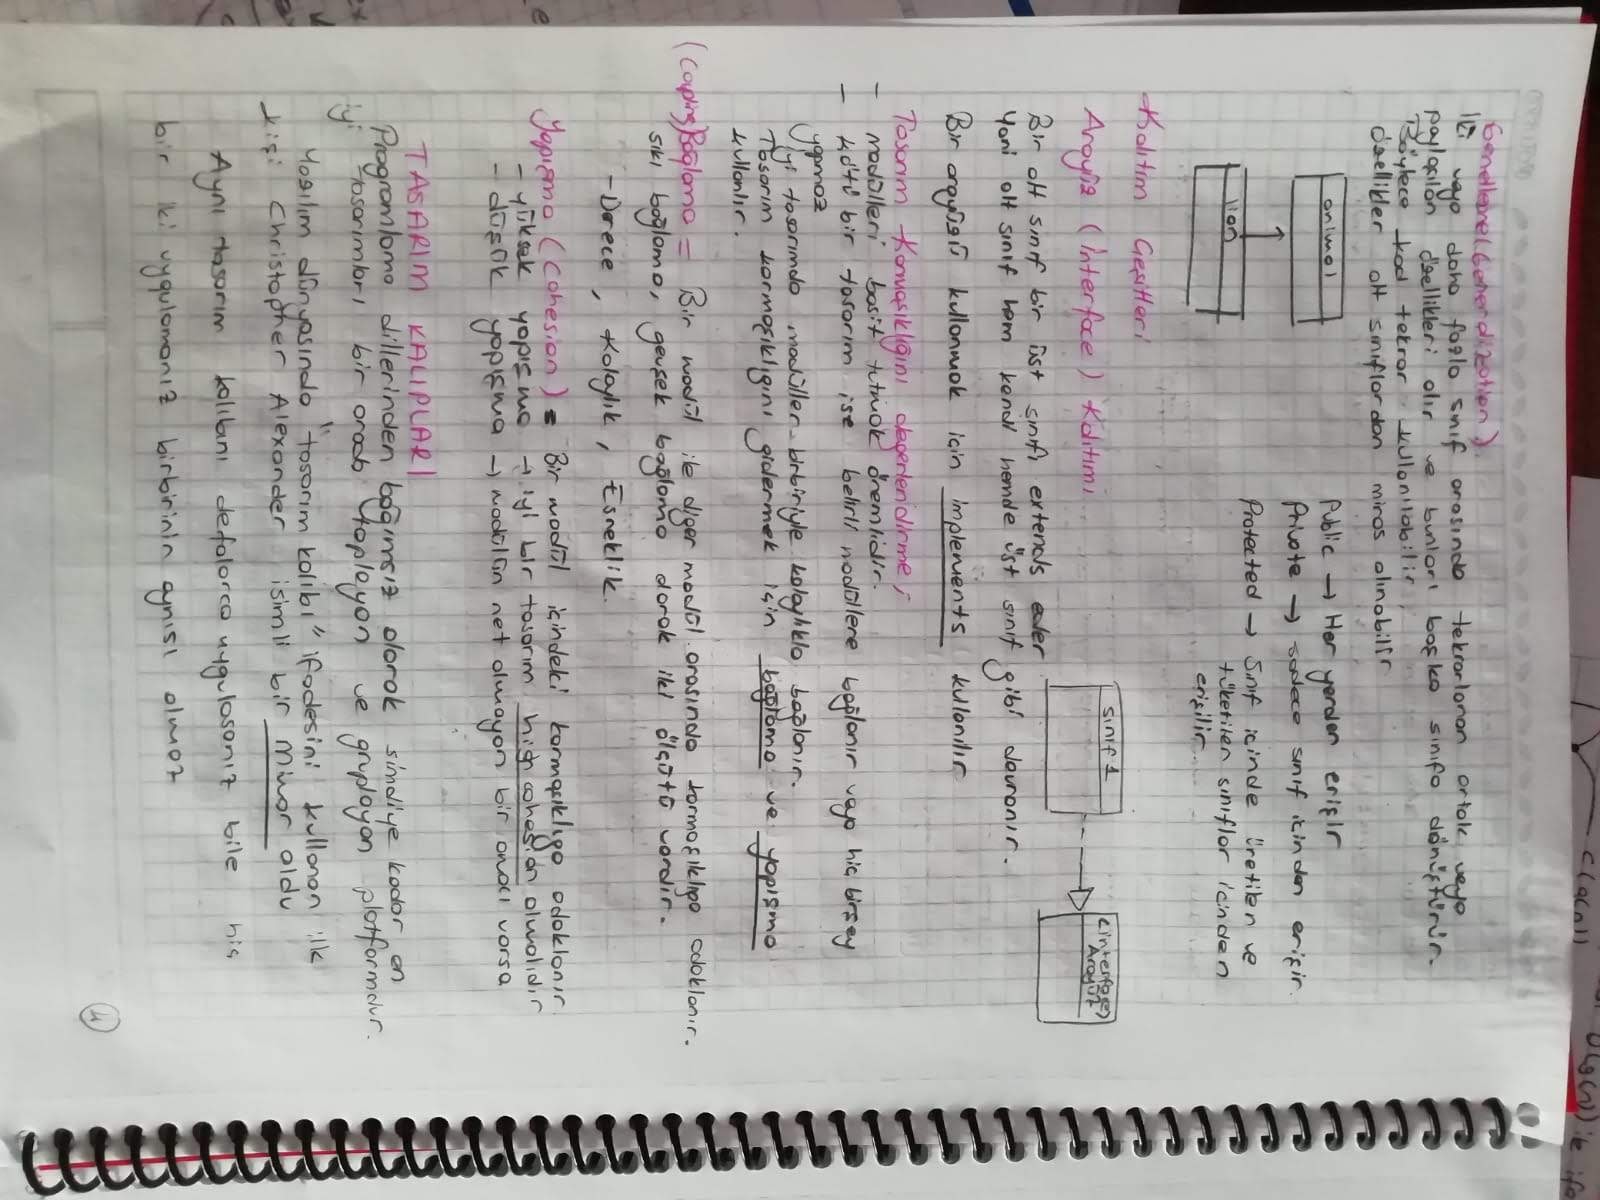 Genelleme(Generalization)
İki veya daha fazla sınıf arasında tekrarlanan ortak veya
paylaşılan özellikleri alır ve bunları başka sınıfa dönüştürür.
Böylece kod tekrar kullanılabilir,
özellikler alt sınıflardan miras alınabilir
animal
lion
Public → Her yerden erişir
Private → sadece sınıf içinden erişir.
Protected → Sınıf içinde üretilen ve
türetilen sınıflar içinden
erişilir.
Kalıtım Çeşitleri
Arayüz (Interface) Kalıtımı
Bir alt sınıf bir üst sınıfı extends eder
Yani alt sınıf hem kendi hemde üst sınıf gibi davranır.
Bir arayüzü kullanmak için implements kullanılır
sınıf 1
<interface>
Arayüz
Tasarım Karmaşıklığını degerlendirme;
- modülleri basit tutmak önemlidir.
- Kötü bir tasarım ise belirli modüllere bağlanır veya hiç birşey
yapmaz
İyi tasarımda modüller birbiriyle kolaylıkla bağlanır.
Tasarım karmaşıklığını gidermek için bağlama ve yapışma
kullanılır.
(Coupling) Bağlama = Bir modül ile diger modül arasında karmaşıklığa odaklanır.
sıkı bağlama, gevşek bağlama olarak iki ölçütü vardır.
- Derece, Kolaylık, Esneklik.
Yapışma (Cohesion) = Bir modül içindeki karmaşıklığa odaklanır.
- yüksek yapışma → iyi bir tasarım high cohesion olmalıdır
- düşük yapışma → modülün net olmayan bir amacı varsa
TASARIM KALIPLARI
Programlama dillerinden bağımsız olarak şimdiye kadar en
iyi tasarımları bir arada toplayan ve gruplayan platformdur.
Yazılım dünyasında "tasarım kalıbı" ifadesini kullanan ilk
kişi Christopher Alexander isimli bir mimar oldu
Aynı tasarım kalıbını defalarca uygulasanız bile hiç
bir iki uygulamanız birbirinin aynısı olmaz